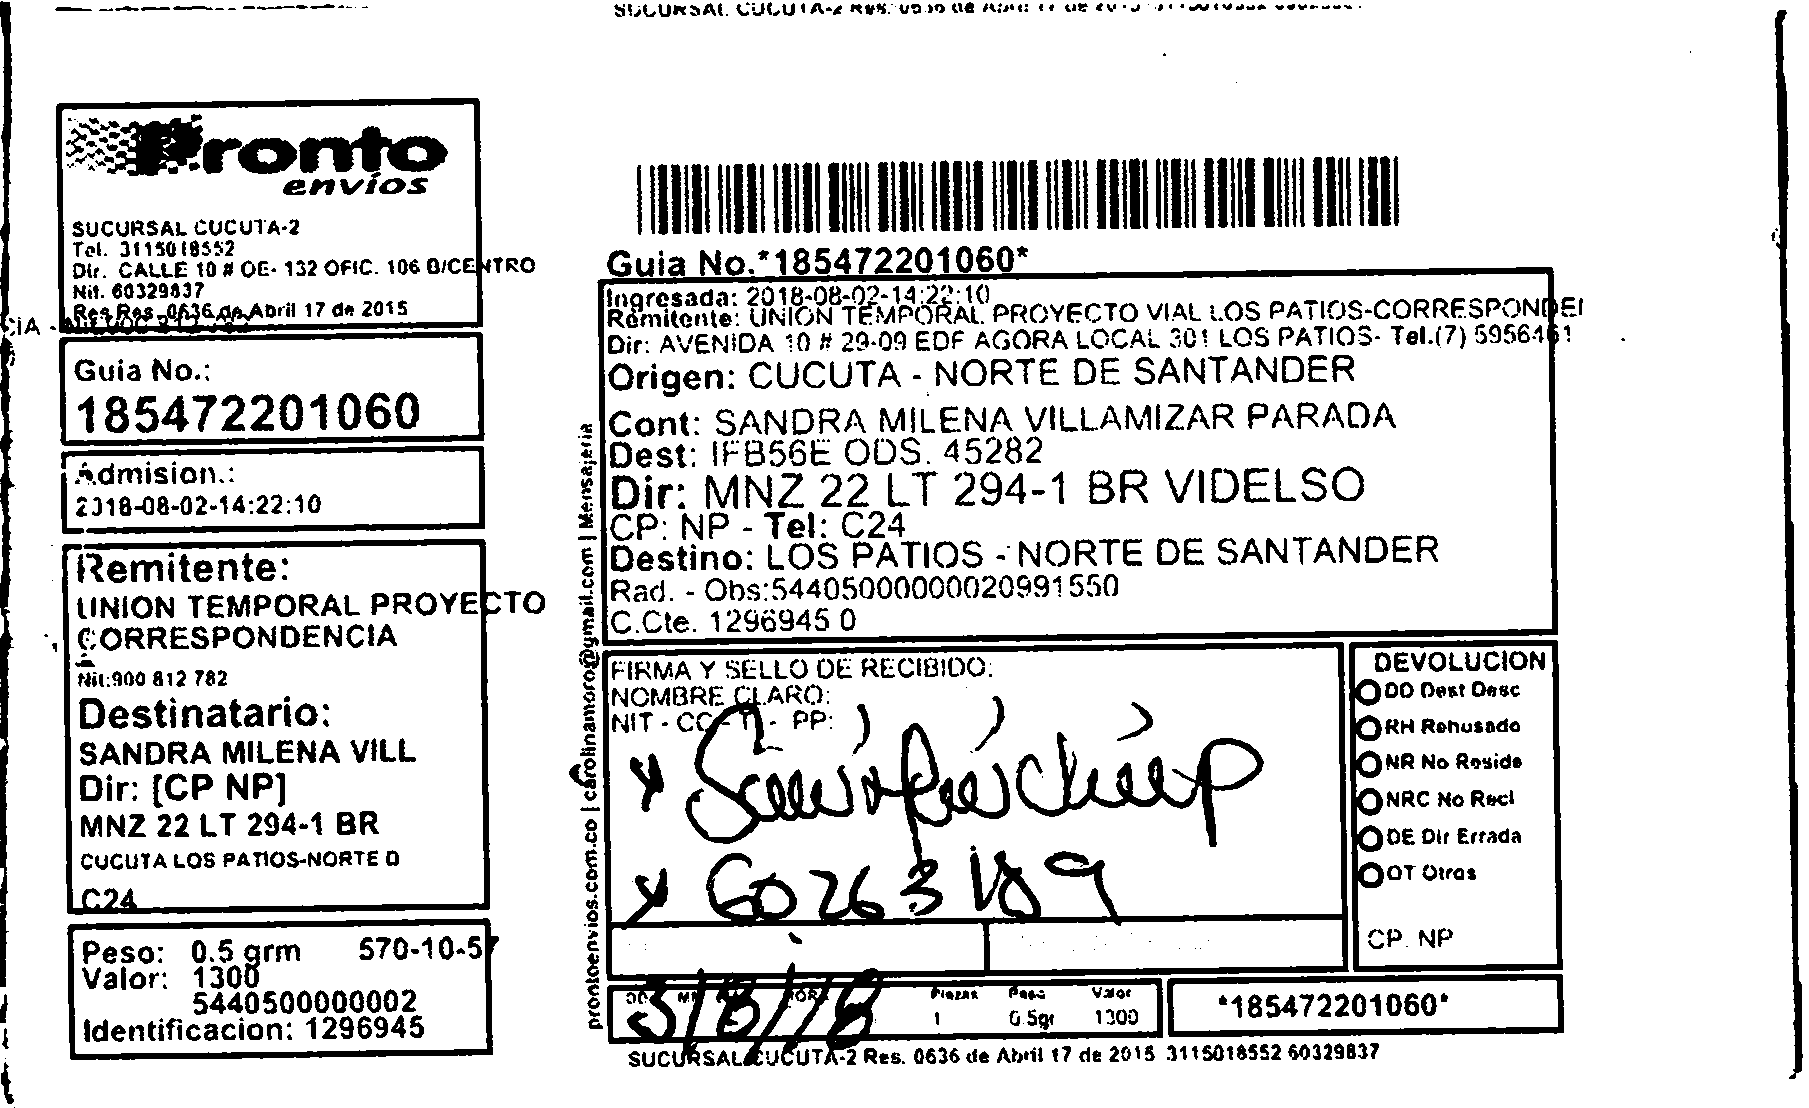 SUCURSAL CUCUTA-2 Res. 0636 de Abril 17 de 2015
Pronto
envíos
SUCURSAL CUCUTA-2
Tel. 3115018552
Dir. CALLE 10 # OE- 132 OFIC. 106 B/CENTRO
Nit. 60329837
Res 0636 de Abril 17 de 2015
Guia No.:
185472201060
Admision.:
2018-08-02-14:22:10
Remitente:
UNION TEMPORAL PROYECTO
CORRESPONDENCIA
Nit:900 812 782
Destinatario:
SANDRA MILENA VILL
Dir: [CP NP]
MNZ 22 LT 294-1 BR
CUCUTA LOS PATIOS-NORTE D
C24
Peso: 0.5 grm 570-10-57
Valor: 1300
5440500000002
Identificacion: 1296945
prontoenvios.com.co | carolinamoro@gmail.com | Mensajeria
Guia No.*185472201060*
Ingresada: 2018-08-02-14:22:10
Remitente: UNION TEMPORAL PROYECTO VIAL LOS PATIOS-CORRESPONDEI
Dir: AVENIDA 10 # 29-09 EDF AGORA LOCAL 301 LOS PATIOS- Tel.(7) 5956461
Origen: CUCUTA - NORTE DE SANTANDER
Cont: SANDRA MILENA VILLAMIZAR PARADA
Dest: IFB56E ODS. 45282
Dir: MNZ 22 LT 294-1 BR VIDELSO
CP: NP - Tel: C24
Destino: LOS PATIOS - NORTE DE SANTANDER
Rad. - Obs:54405000000020991550
C.Cte. 1296945 0
FIRMA Y SELLO DE RECIBIDO:
NOMBRE CLARO:
NIT - CC - TI - PP:
x
x 60263189
DEVOLUCION
DD Dest Desc
RH Rehusado
NR No Reside
NRC No Recl
DE Dir Errada
OT Otros
CP. NP
3/8/18
Piezas Peso Valor
1 0.5gr 1300
*185472201060*
SUCURSAL CUCUTA-2 Res. 0636 de Abril 17 de 2015 3115018552 60329837